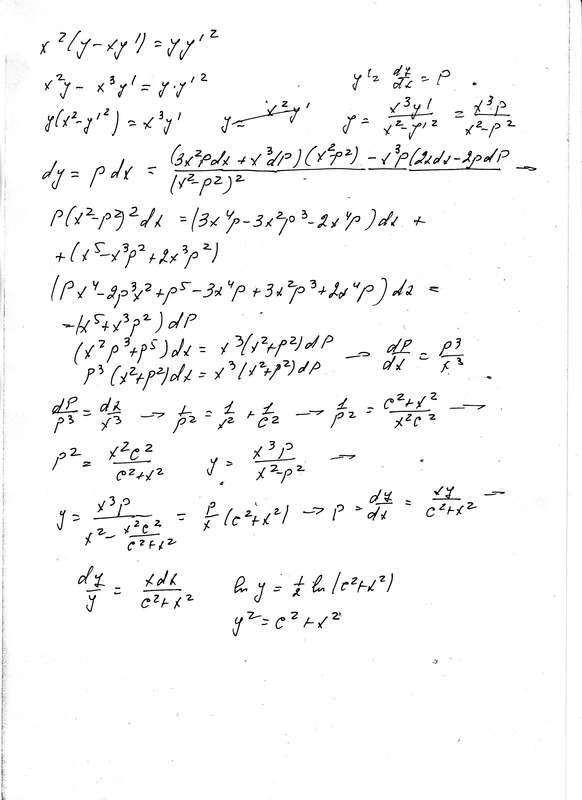 x²(y-xy') = yy'²
x²y - x³y' = y·y'² y' = dy/dx = p .
y(x²-y'²) = x³y' y = x²y' y = x³y'/(x²-y'²) = x³p/(x²-p²)
dy = pdx = ((3x²pdx + x³dp)(x²p²) - x³p(2xdx-2pdp)/(x²-p²)² →
p(x²-p²)²dx = (3x⁴p-3x²p³-2x⁴p)dx +
+(x⁵-x³p²+2x³p²)
(px⁴-2p³x²+p⁵-3x⁴p+3x²p³+2x⁴p)dx =
-(x⁵+x³p²)dp
(x²p³+p⁵)dx = x³(x²+p²)dp
p³(x²+p²)dx = x³(x²+p²)dp → dp/dx = p³/x³
dp/p³ = dx/x³ → 1/p² = 1/x² + 1/c² → 1/p² = (c²+x²)/(x²c²) →
p² = x²c²/(c²+x²) y = x³p/(x²-p²) →
y = x³p/(x² - x²c²/(c²+x²)) = p/x (c²+x²) → p = dy/dx = xy/(c²+x²) →
dy/y = xdx/(c²+x²) ln y = 1/2 ln(c²+x²)
y² = c²+x²